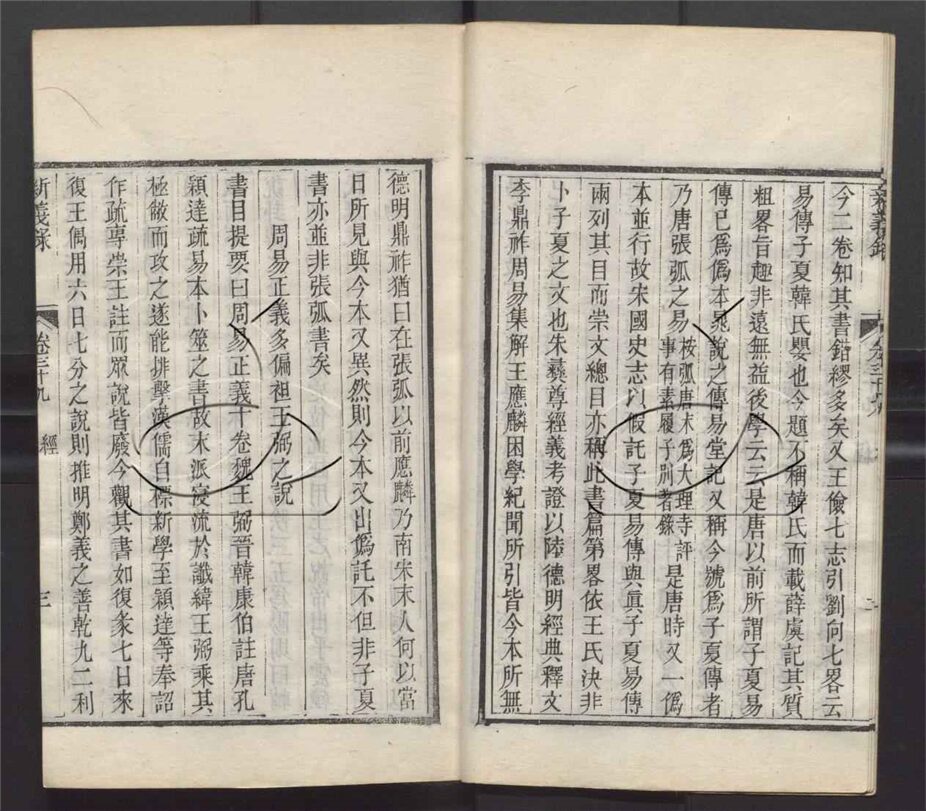 今二卷知其書錯繆多矣又王儉七志引劉向七畧云
易傳子夏韓氏嬰也今題不稱韓氏而載薛虞記其質
粗畧旨趣非遠無益後學云云是唐以前所謂子夏易
傳已爲僞本晁說之傳易堂記又稱今號爲子夏傳者
乃唐張弧之易
按弧唐末爲大理寺評
事有素履子別著錄
是唐時又一僞
本並行故宋國史志以假託子夏易傳與眞子夏易傳
兩列其目而崇文總目亦稱此書篇第畧依王氏決非
卜子夏之文也朱彝尊經義考證以陸德明經典釋文
李鼎祚周易集解王應麟困學紀聞所引皆今本所無
德明鼎祚猶曰在張弧以前應麟乃南宋末人何以當
日所見與今本又異然則今本又出僞託不但非子夏
書亦並非張弧書矣
周易正義多偏祖王弼之說
書目提要曰周易正義十卷魏王弼晉韓康伯註唐孔
穎達疏易本卜筮之書故末派寖流於讖緯王弼乘其
極敝而攻之遂能排擊漢儒自標新學至穎達等奉詔
作疏專崇王註而眾說皆廢今觀其書如復彖七日來
復王偶用六日七分之說則推明鄭義之善乾九二利
新義錄
卷三十九
經
三